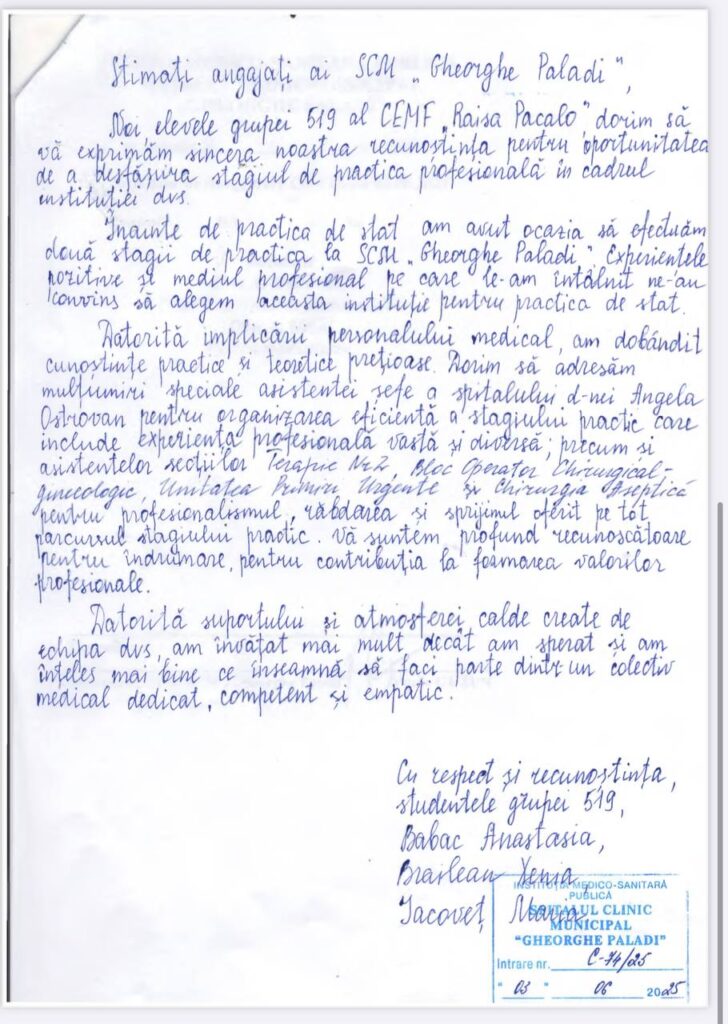 Stimați angajati ai SCM „Gheorghe Paladi",
Noi elevele grupei 519 al CEMF „Raisa Pacalo" dorim să
vă exprimăm sincera noastra recunoștința pentru oportunitatea
de a desfășura stagiul de practica profesională în cadrul
instituției dvs.
Înainte de practica de stat am avut ocazia să efectuăm
două stagii de practica la SCM „Gheorghe Paladi". Experiențele
pozitive și mediul profesional pe care le-am întâlnit ne-au
convins să alegem aceasta instituție pentru practica de stat.
Datorită implicării personalului medical, am dobândit
cunoștințe practice și teoretice prețioase. Dorim să adresăm
mulțumiri speciale asistentei șefe a spitalului d-nei Angela
Ostrovan pentru organizarea eficientă a stagiului practic care
include experiența profesională vastă și diversă; precum și
asistentelor secțiilor Terapie Nr2, Bloc Operator Chirurgical-
ginecologic, Unitatea Primiri Urgente și Chirurgia Aseptică
pentru profesionalismul, răbdarea și sprijinul oferit pe tot
parcursul stagiului practic. Vă suntem profund recunoscătoare
pentru îndrumare, pentru contribuția la formarea valorilor
profesionale.
Datorită suportului și atmosferei calde create de
echipa dvs, am învățat mai mult decât am sperat și am
înțeles mai bine ce înseamnă să faci parte dintr-un colectiv
medical dedicat, competent și empatic.
Cu respect și recunoștința,
studentele grupei 519,
Babac Anastasia,
Brailean Xenia,
Iacoveț Maria
INSTITUȚIA MEDICO-SANITARĂ
PUBLICĂ
SPITALUL CLINIC
MUNICIPAL
"GHEORGHE PALADI"
Intrare nr. C-74/25
"03" 06 2025